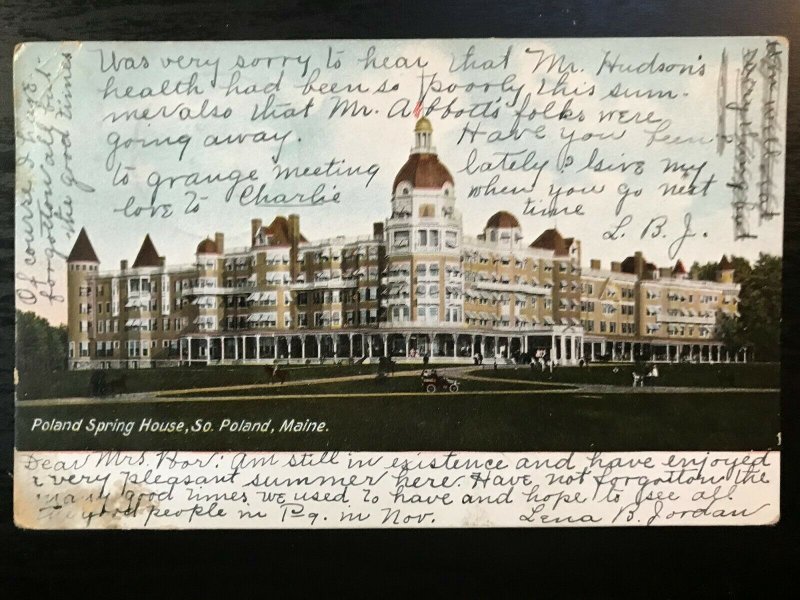 Was very sorry to hear that Mr. Hudson's
health had been so poorly this sum-
mer also that Mr. Abbott's folks were
going away. Have you been
to grange meeting lately? Give my
love to Charlie when you go next
time
L. B. J.
Of course I have
forgotten all but
the good times
Poland Spring House, So. Poland, Maine.
Dear Mrs. Hoor: Am still in existence and have enjoyed
a very pleasant summer here. Have not forgotten the
many good times we used to have and hope to see all
good people in in Nov. Lena B. Jordan